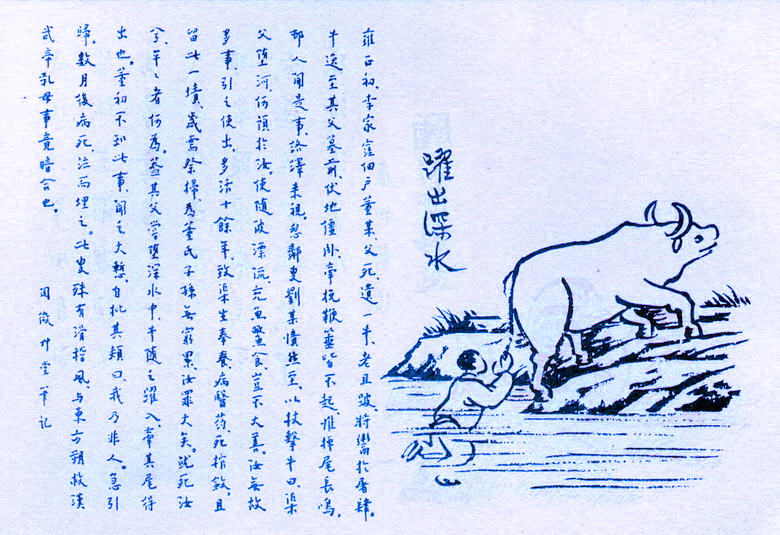 躍出深水
雍正初、李家窪佃户董某父死、遺一牛、老且跛、將鬻於屠肆。
牛逸至其父墓前、伏地僵卧、牽挽鞭箠皆不起、惟掉尾長鳴。
邨人聞是事、絡繹来視。忽鄰叟劉某憤然至、以杖擊牛曰、渠
父墮河、何預於汝。使隨波漂沉、充魚鱉食、豈不大善。汝無故
多事、引之使出、多活十餘年、致渠生奉養、病醫药、死棺斂、且
留此一墳、歲需祭掃、為董氏子孫無窮累、汝罪大矣。就死汝
分、牟々者何為。蓋其父嘗墮深水中、牛隨之躍入、牽其尾得
出也。董初不知此事、聞之大慙、自批其頰曰、我乃非人。急引
歸。數月後病死、泣而埋之。此叟殊有滑稽風、与東方朔救漢
武帝乳母事竟暗合也。
閲微艸堂筆记